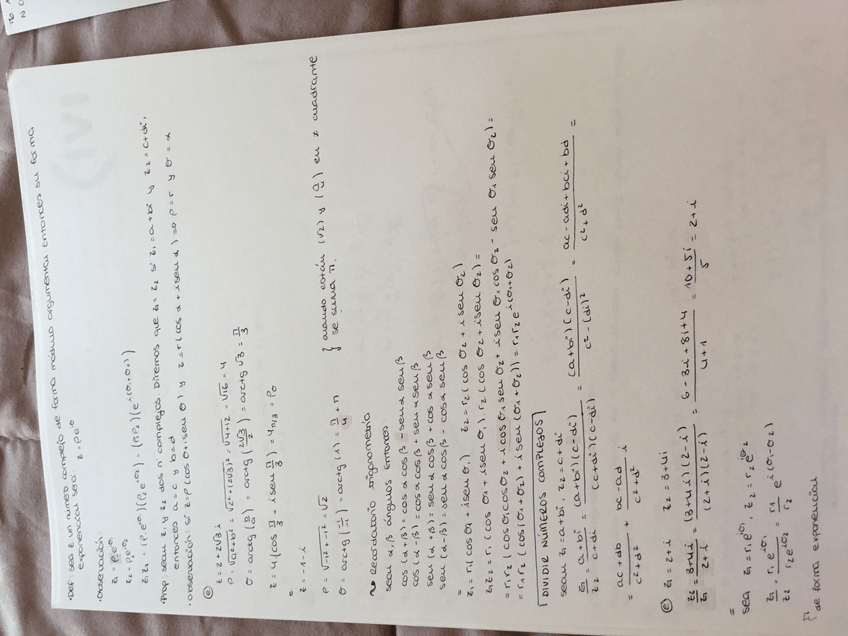 · Def sea z un numero complejo de forma modulo argumental entonces su forma
exponencial será: z = ρe^iσ
· Observación
z₁ = ρ₁e^iσ₁
z₂ = ρ₂e^iσ₂
z₁z₂ = (ρ₁e^iσ₁)(ρ₂e^iσ₂) = (ρ₁ρ₂)(e^i(σ₁+σ₂))
· Prop: sean z₁ y z₂ dos nº complejos Diremos que z₁ = z₂ si z₁ = a+bi y z₂ = c+di,
entonces a = c y b = d
· Observación: si z = ρ(cos σ + i sen σ) y z = r(cos α + i sen α) => ρ = r y σ = α
ⓔ
z = 2 + 2√3 i
ρ = √a²+b² = √2²+(2√3)² = √4+12 = √16 = 4
σ = arctg (b/a) = arctg (2√3/2) = arctg √3 = π/3
z = 4 (cos π/3 + i sen π/3) = 4π/3 = ρσ
=
z = -1 - i
ρ = √-1² + -1² = √2
σ = arctg (-1/-1) = arctg (1) = π/4 + π
{ cuando están (√2) y (π/4) en ≠ cuadrante
se suma π.
~ Recordatorio trigonometría
sean α, β ángulos entonces
cos (α+β) = cos α cos β - sen α sen β
cos (α-β) = cos α cos β + sen α sen β
sen (α+β) = sen α cos β + cos α sen β
sen (α-β) = sen α cos β - cos α sen β
=
z₁ = r₁ (cos σ₁ + i sen σ₁) z₂ = r₂ (cos σ₂ + i sen σ₂)
z₁z₂ = r₁ (cos σ₁ + i sen σ₁) · r₂ (cos σ₂ + i sen σ₂) =
= r₁r₂ (cos σ₁ cos σ₂ + i cos σ₁ sen σ₂ + i sen σ₁ cos σ₂ - sen σ₁ sen σ₂) =
= r₁r₂ (cos (σ₁+σ₂) + i sen (σ₁+σ₂)) = r₁r₂ e^i(σ₁+σ₂)
DIVIDIR NÚMEROS COMPLEJOS
sean z₁ = a+bi, z₂ = c+di
z₁/z₂ = (a+bi)/(c+di) = (a+bi)(c-di)/(c+di)(c-di) = (a+bi)(c-di)/(c²-(di)²) = (ac-adi+bci+bd)/(c²+d²) =
= (ac+db)/(c²+d²) + (bc-ad)/(c²+d²) i
ⓔ z₁ = 2+i z₂ = 3+4i
z₂/z₁ = (3+4i)/(2+i) = (3+4i)(2-i)/(2+i)(2-i) = (6-3i+8i+4)/(4+1) = (10+5i)/5 = 2+i
=
sea z₁ = r₁e^iσ₁, z₂ = r₂e^iσ₂
z₁/z₂ = r₁e^iσ₁/r₂e^iσ₂ = r₁/r₂ e^i(σ₁-σ₂)
de forma exponencial